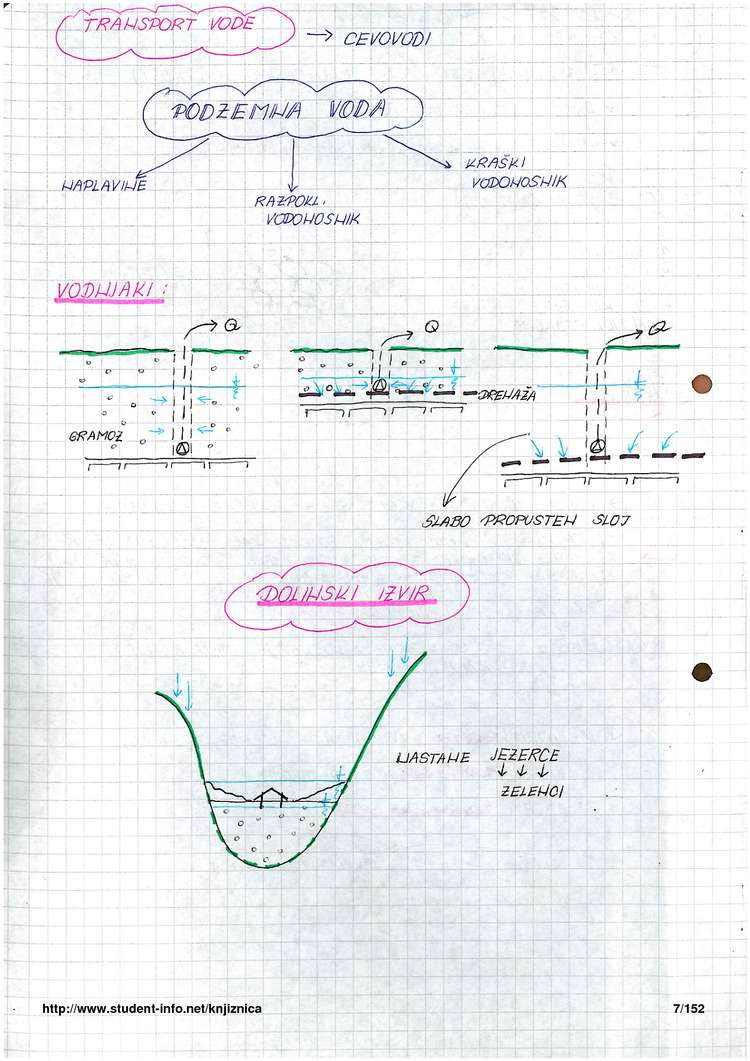 TRANSPORT VODE → CEVOVODI
PODZEMNA VODA
NAPLAVINE
RAZPOKL. VODONOSNIK
KRAŠKI VODONOSNIK
VODNJAKI:
Q
Q
Q
GRAMOZ
DRENAŽA
SLABO PROPUSTEN SLOJ
DOLINSKI IZVIR
NASTANE JEZERCE
ZELENCI
http://www.student-info.net/knjiznica
7/152